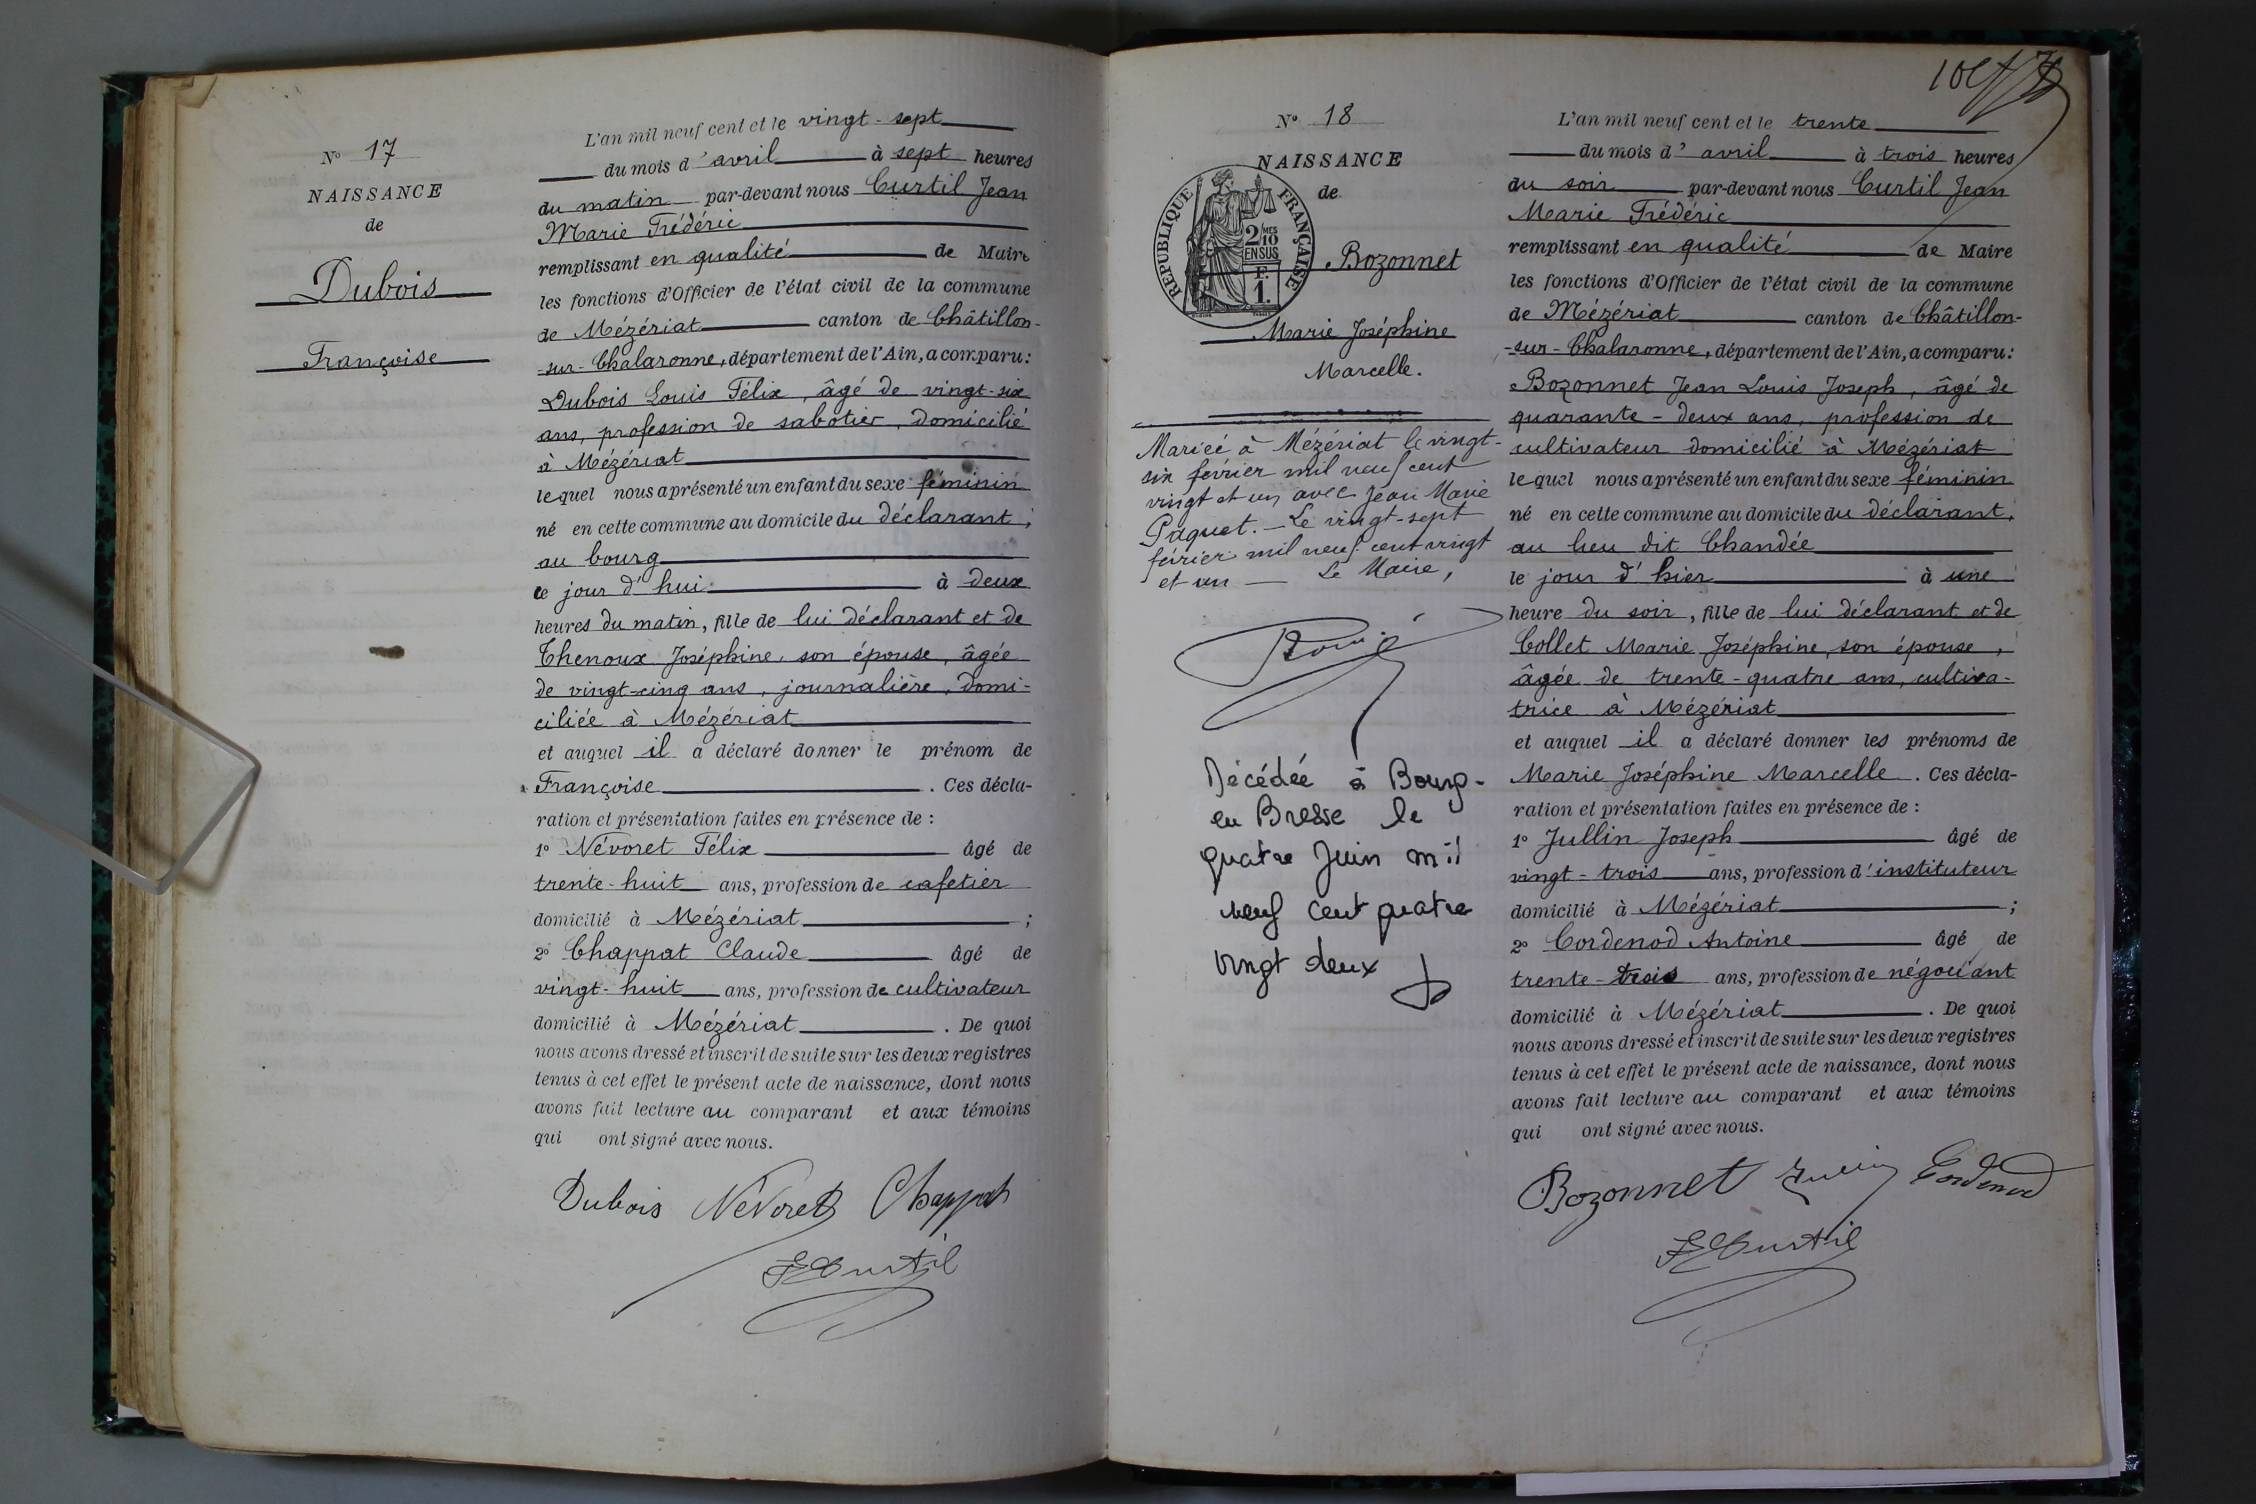 N° 17
NAISSANCE
de
Dubois
Françoise
L'an mil neuf cent et le vingt-sept
du mois d'avril à sept heures
du matin par-devant nous Curtil Jean
Marie Frédéric
remplissant en qualité de Maire
les fonctions d'Officier de l'état civil de la commune
de Mézériat canton de Châtillon-
-sur-Chalaronne, département de l'Ain, a comparu :
Dubois Louis Félix, âgé de vingt-six
ans, profession de sabotier, domicilié
à Mézériat
lequel nous a présenté un enfant du sexe féminin
né en cette commune au domicile du déclarant,
au bourg
ce jour d'hui à deux
heures du matin, fille de lui déclarant et de
Thenoux Joséphine, son épouse, âgée
de vingt-cinq ans, journalière, domi-
ciliée à Mézériat
et auquel il a déclaré donner le prénom de
Françoise. Ces décla-
ration et présentation faites en présence de :
1° Névoret Félix âgé de
trente-huit ans, profession de cafetier
domicilié à Mézériat ;
2° Chappat Claude âgé de
vingt-huit ans, profession de cultivateur
domicilié à Mézériat. De quoi
nous avons dressé et inscrit de suite sur les deux registres
tenus à cet effet le présent acte de naissance, dont nous
avons fait lecture au comparant et aux témoins
qui ont signé avec nous.
Dubois Névoret Chappat
F Curtil
N° 18
NAISSANCE
de
REPUBLIQUE FRANÇAISE
2/10 MES
EN SUS
F.
1.
Bozonnet
Marie Joséphine
Marcelle.
Mariée à Mézériat le vingt-
six février mil neuf cent
vingt et un avec Jean Marie
Paquet. - Le vingt-sept
février mil neuf cent vingt
et un - Le Maire,
Décédée à Bourg-
en Bresse le
quatre Juin mil
neuf cent quatre
vingt deux
L'an mil neuf cent et le trente
du mois d'avril à trois heures
du soir par-devant nous Curtil Jean
Marie Frédéric
remplissant en qualité de Maire
les fonctions d'Officier de l'état civil de la commune
de Mézériat canton de Châtillon-
-sur-Chalaronne, département de l'Ain, a comparu :
Bozonnet Jean Louis Joseph, âgé de
quarante-deux ans, profession de
cultivateur domicilié à Mézériat
lequel nous a présenté un enfant du sexe féminin
né en cette commune au domicile du déclarant,
au lieu dit Chandée
le jour d'hier à une
heure du soir, fille de lui déclarant et de
Collet Marie Joséphine, son épouse,
âgée de trente-quatre ans, cultiva-
trice à Mézériat
et auquel il a déclaré donner les prénoms de
Marie Joséphine Marcelle. Ces décla-
ration et présentation faites en présence de :
1° Jullin Joseph âgé de
vingt-trois ans, profession d'instituteur
domicilié à Mézériat ;
2° Cordenod Antoine âgé de
trente-trois ans, profession de négociant
domicilié à Mézériat. De quoi
nous avons dressé et inscrit de suite sur les deux registres
tenus à cet effet le présent acte de naissance, dont nous
avons fait lecture au comparant et aux témoins
qui ont signé avec nous.
Bozonnet Jullin Cordenod
F Curtil